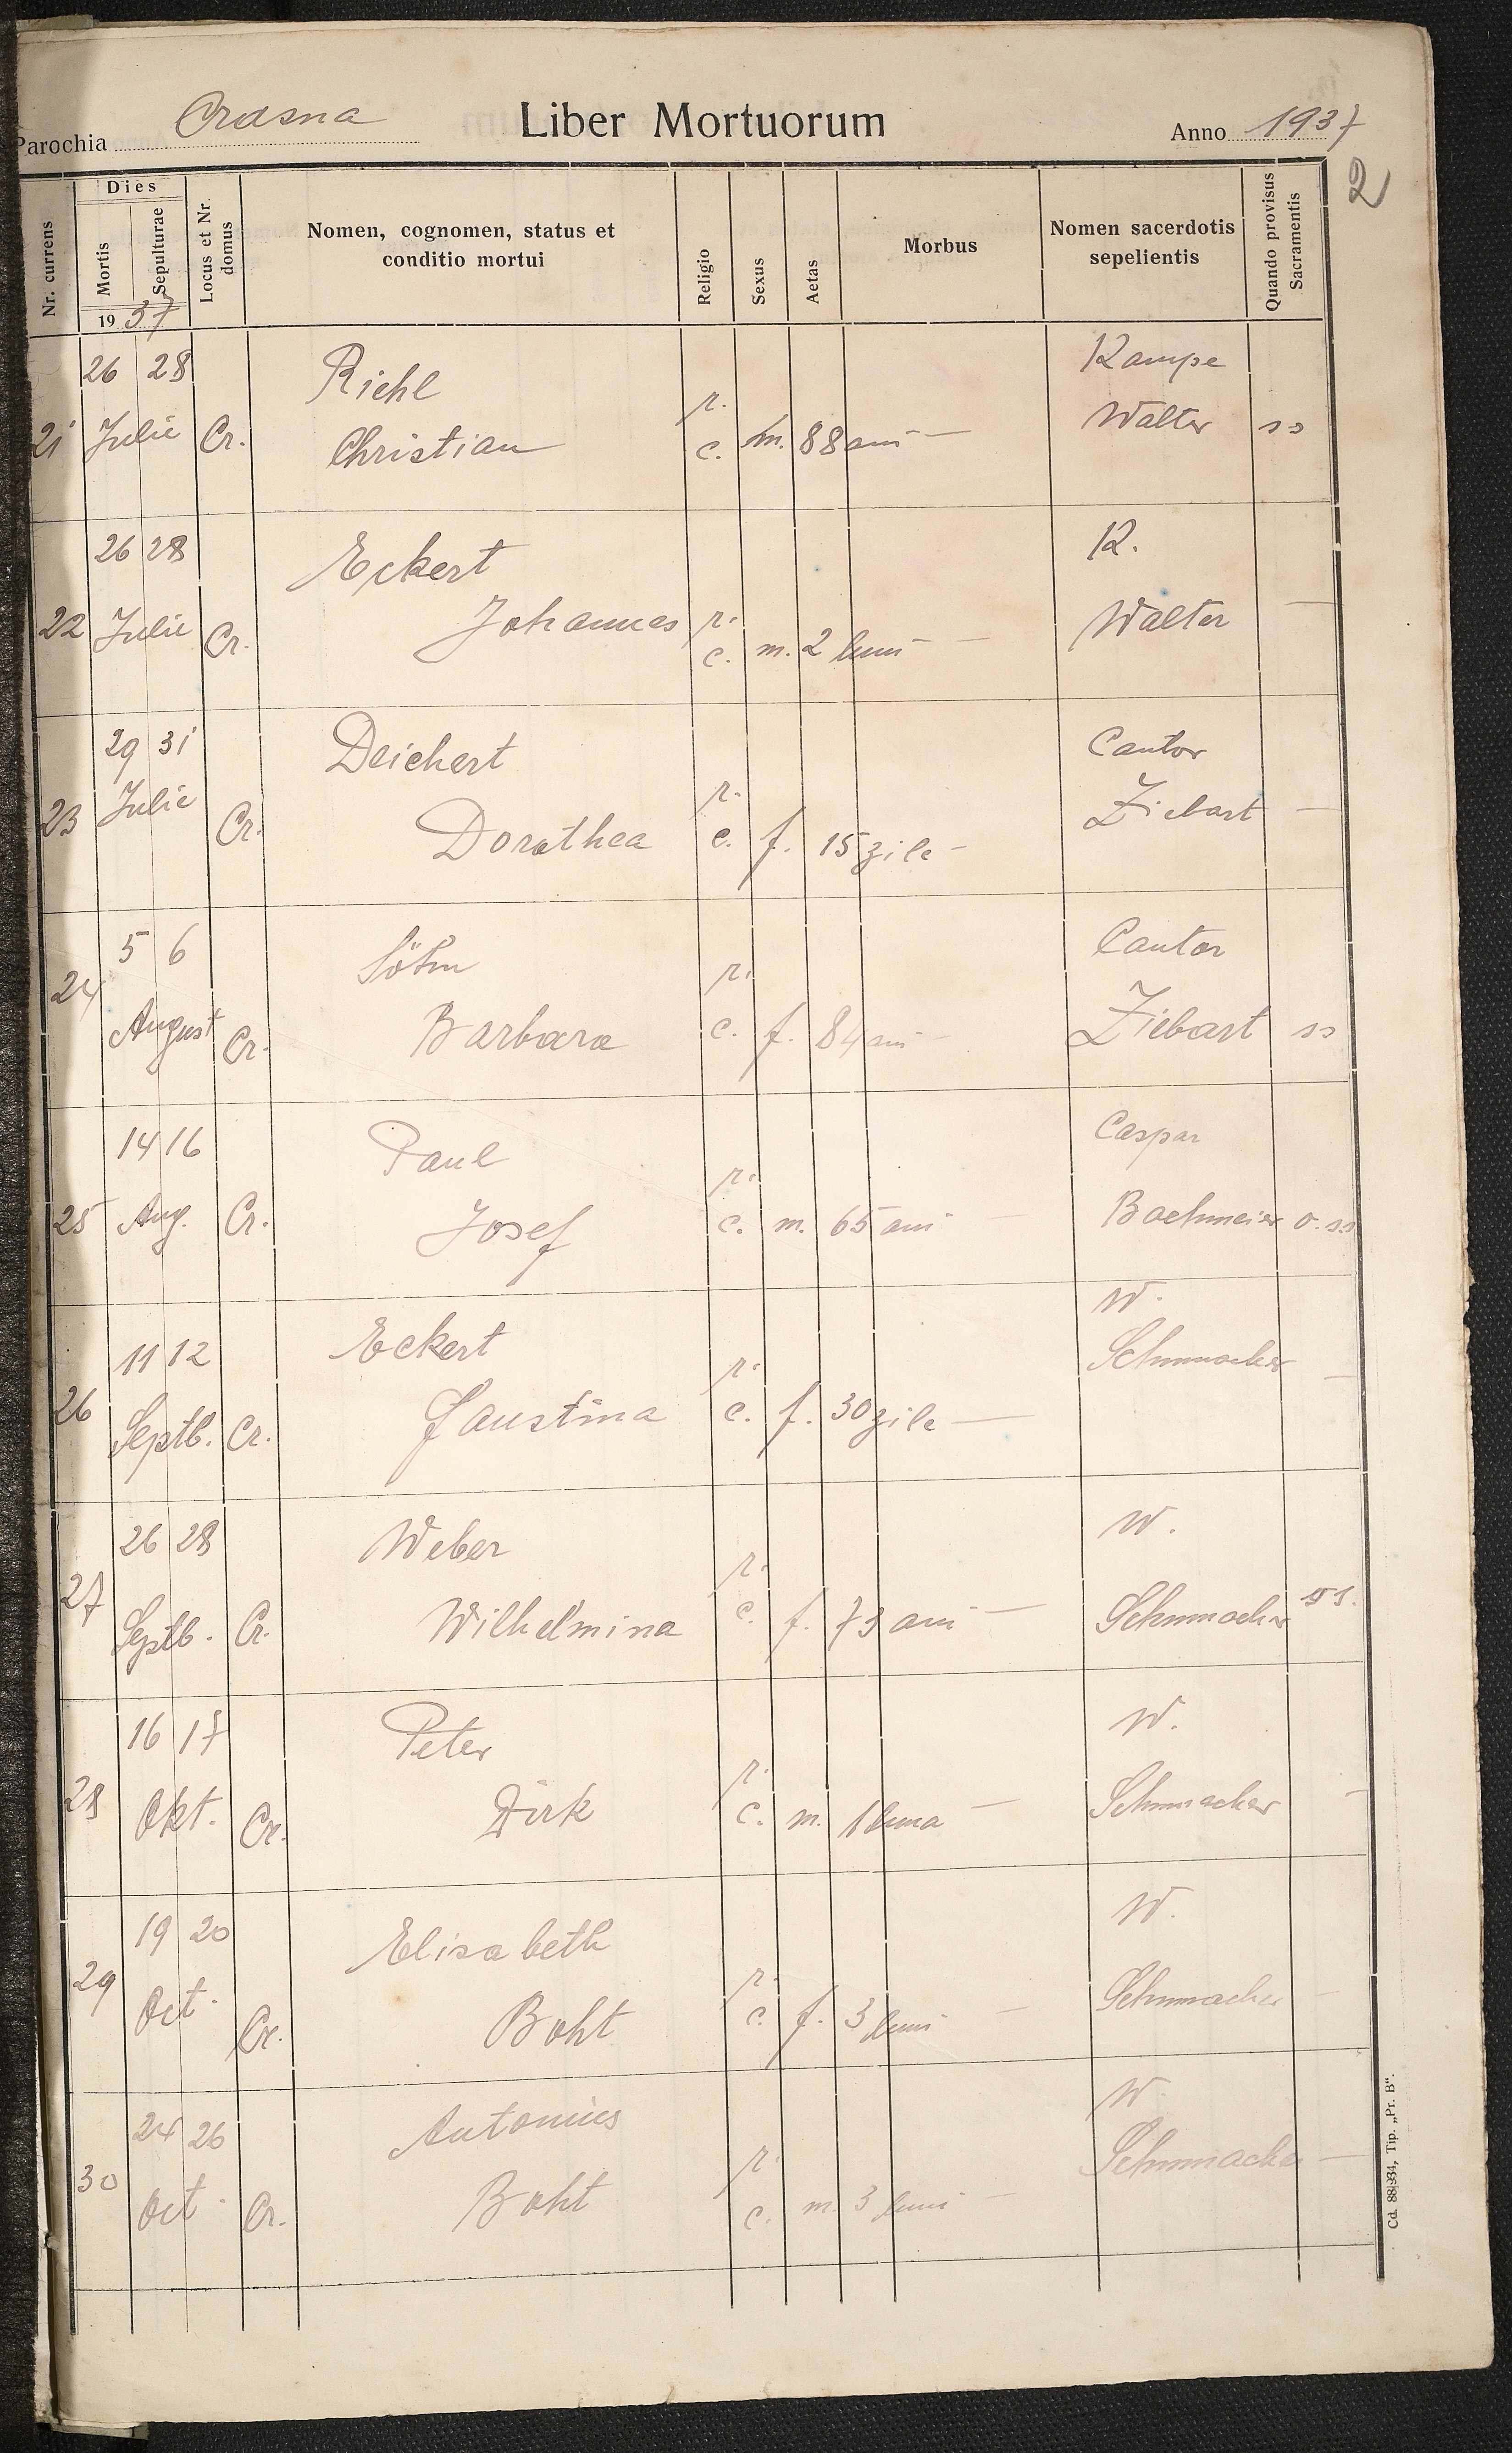 Parochia Crasna Liber Mortuorum Anno 1937
2
Nr. currens
Dies
Mortis
Sepulturae
1937
Locus et Nr. domus
Nomen, cognomen, status et
conditio mortui
Religio
Sexus
Aetas
Morbus
Nomen sacerdotis
sepelientis
Quando provisus
Sacramentis
26 28 Riehl Kampe
21 Julie Cr. Christian r. c. m. 88 ani — Walter ss
26 28 Eckert K.
22 Julie Cr. Johannes r. c. m. 2 luni — Walter —
29 31 Deichert Cantor
23 Julie Cr. Dorothea r. c. f. 15 zile — Ziebart —
5 6 Söhn Cantor
24 August Cr. Barbara r. c. f. 84 ani — Ziebart ss
14 16 Paul Caspar
25 Aug. Cr. Josef r. c. m. 65 ani — Bachmeier o. ss
11 12 Eckert W.
26 Septb. Cr. Faustina r. c. f. 30 zile — Schumacher —
26 28 Weber W.
27 Septb. Cr. Wilhelmina r. c. f. 73 ani — Schumacher ss.
16 17 Peter W.
28 Okt. Cr. Dirk r. c. m. 1 luna — Schumacher —
19 20 Elisabeth W.
29 Oct. Cr. Boht r. c. f. 3 luni — Schumacher —
24 26 Antonius W
30 Oct. Cr. Boht r. c. m. 3 luni — Schumacher —
Cd. 88|934, Tip. „Pr. B".